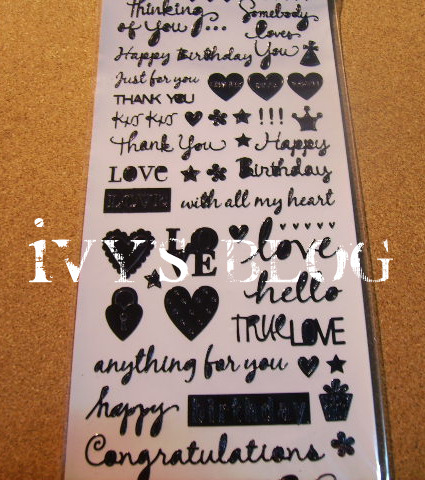 Thinking
of You...
Somebody
loves
You
Happy Birthday
Just for you
THANK YOU
Kxo Kxo
!!!
Thank You
Happy
Birthday
LOVE
LOVE
with all my heart
LOVE
love
iVY'S BLOG
hello
TRUE LOVE
anything for you
happy
birthday
Congratulations